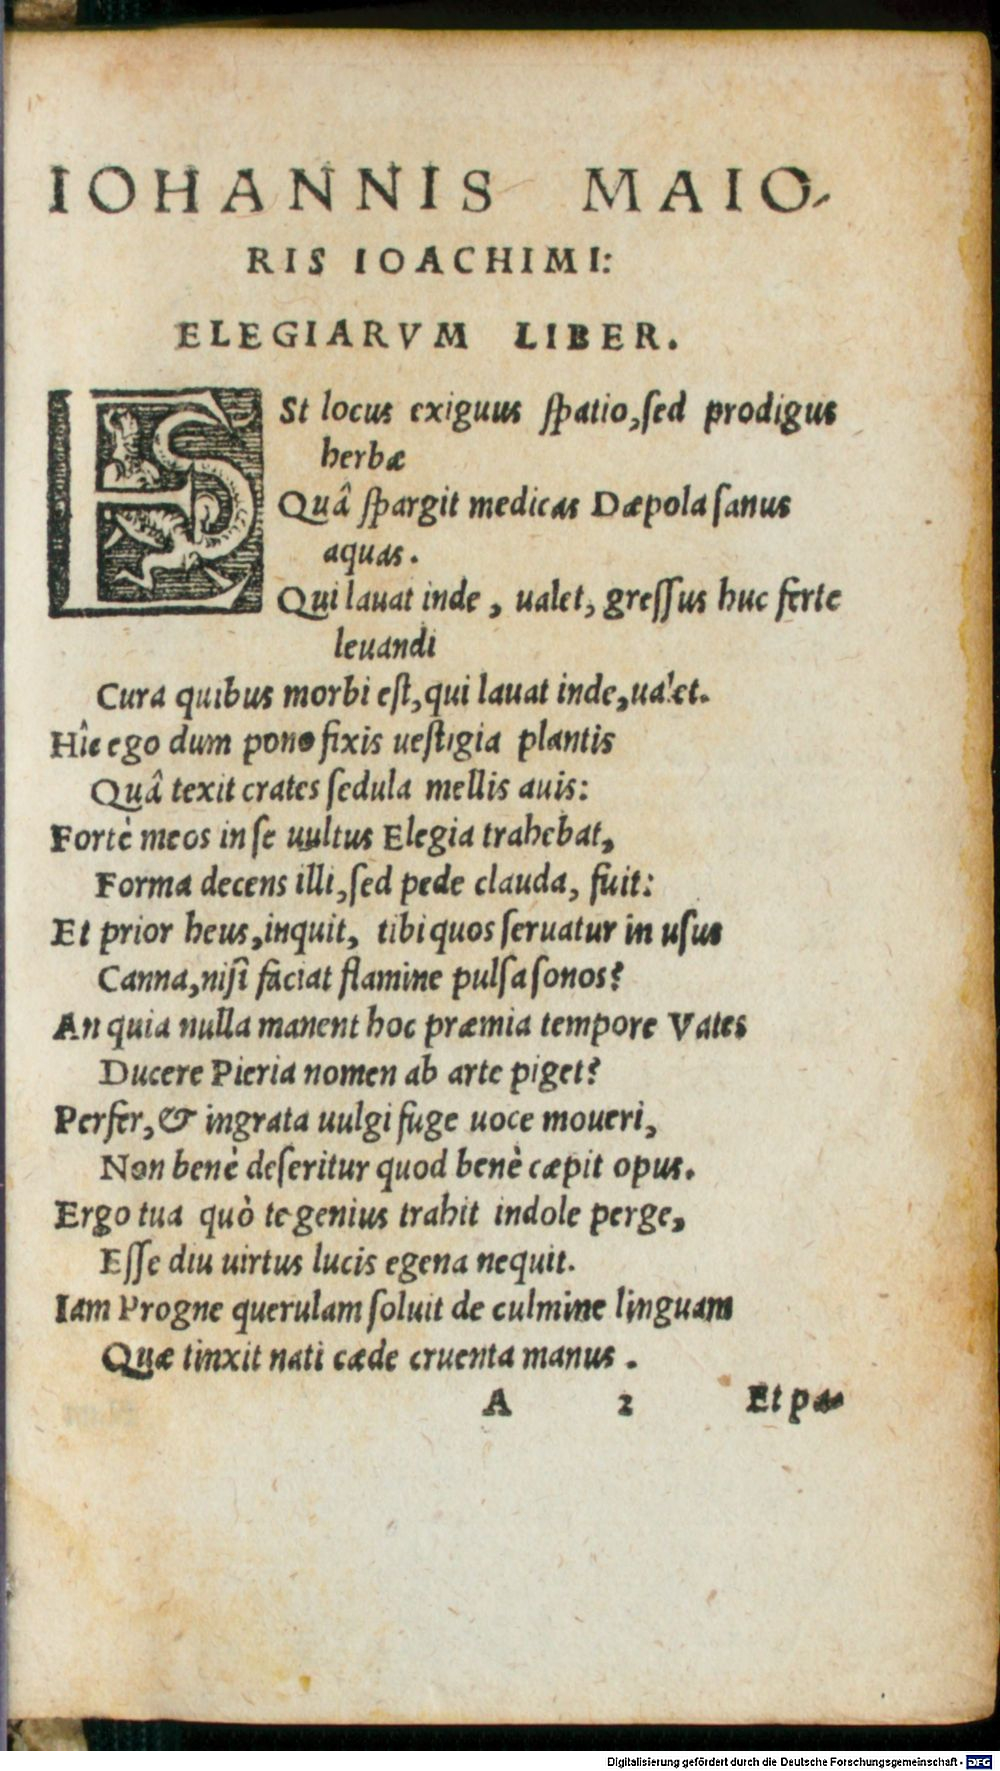 IOHANNIS MAIO-
RIS IOACHIMI:
ELEGIARVM LIBER.
ESt locus exiguus spatio, sed prodigus
herbæ
Quâ spargit medicas Dæpola sanus
aquas.
Qui lauat inde, ualet, gressus huc ferte
leuandi
Cura quibus morbi est, qui lauat inde, ualet.
Hîc ego dum pono fixis uestigia plantis
Quâ texit crates sedula mellis auis:
Fortè meos in se uultus Elegia trahebat,
Forma decens illi, sed pede clauda, fuit:
Et prior heus, inquit, tibi quos seruatur in usus
Canna, nisî faciat flamine pulsa sonos?
An quia nulla manent hoc præmia tempore Vates
Ducere Pieria nomen ab arte piget?
Perfer, & ingrata uulgi fuge uoce moueri,
Non benè deseritur quod benè cæpit opus.
Ergo tua quò te genius trahit indole perge,
Esse diu uirtus lucis egena nequit.
Iam Progne querulam soluit de culmine linguam
Quæ tinxit nati cæde cruenta manus.
A 2 Et pa-
Digitalisierung gefördert durch die Deutsche Forschungsgemeinschaft - DFG